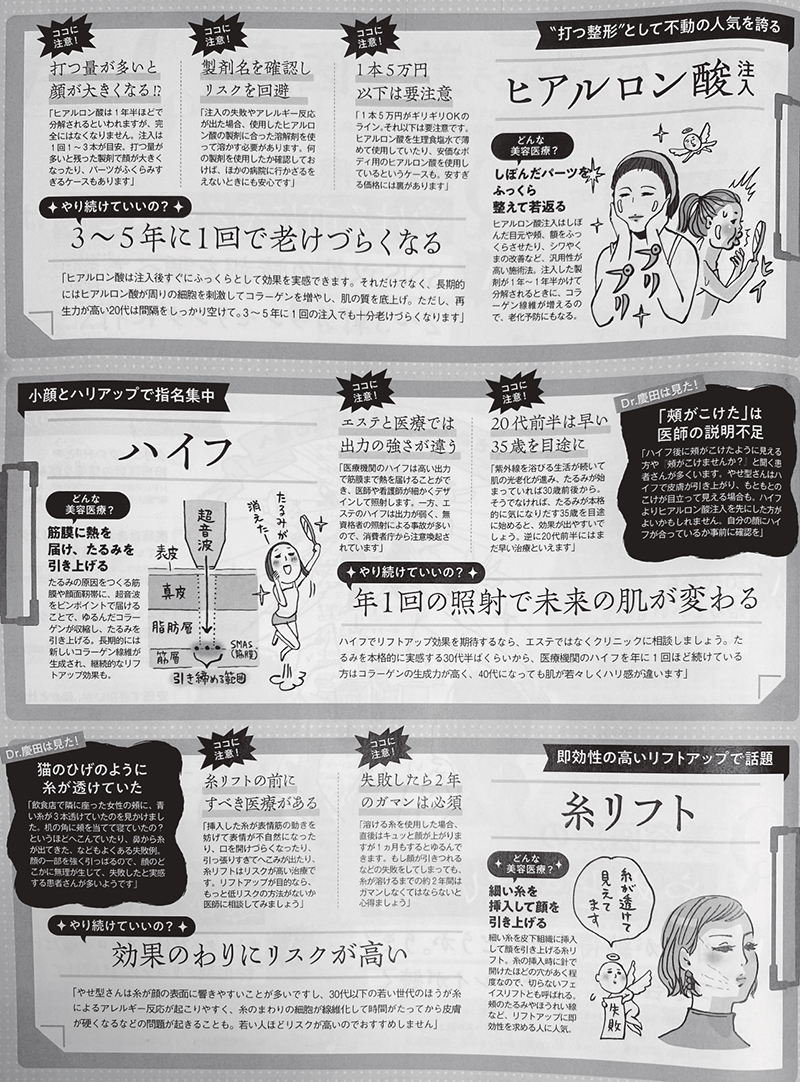 “打つ整形”として不動の人気を誇る
ヒアルロン酸注入
どんな
美容医療?
しぼんだパーツを
ふっくら
整えて若返る
ヒアルロン酸注入はしぼ
んだ目元や頬、額をふっ
くらさせたり、シワやく
まの改善など、汎用性が
高い施術法。注入した製
剤が1年~1年半かけて
分解されるときに、コラ
ーゲン線維が増えるの
で、老化予防にもなる。
プリプリ
ヒィ
ココに
注意!
1本5万円
以下は要注意
「1本5万円がギリギリOKの
ライン。それ以下は要注意です。
ヒアルロン酸を生理食塩水で薄
めて使用していたり、安価なボ
ディ用のヒアルロン酸を使用し
ているというケースも。安すぎ
る価格には裏があります」
ココに
注意!
製剤名を確認し
リスクを回避
「注入の失敗やアレルギー反応
が出た場合、使用したヒアルロ
ン酸の製剤に合った溶解剤を使
って溶かす必要があります。何
の製剤を使用したか確認してお
けば、ほかの病院に行かざるを
えないときにも安心です」
ココに
注意!
打つ量が多いと
顔が大きくなる!?
「ヒアルロン酸は1年半ほどで
分解されるといわれますが、完
全にはなくなりません。注入は
1回1~3本が目安。打つ量が
多いと残った製剤で顔が大きく
なったり、パーツがふくらみす
ぎるケースもあります」
やり続けていいの?
3~5年に1回で老けづらくなる
「ヒアルロン酸は注入後すぐにふっくらとして効果を実感できます。それだけでなく、長期的
にはヒアルロン酸が周りの細胞を刺激してコラーゲンを増やし、肌の質を底上げ。ただし、再
生力が高い20代は間隔をしっかり空けて。3~5年に1回の注入でも十分老けづらくなります」
小顔とハリアップで指名集中
ハイフ
どんな
美容医療?
筋膜に熱を
届け、たるみを
引き上げる
たるみの原因をつくる筋
膜や顔面靭帯に、超音波
をピンポイントで届ける
ことで、ゆるんだコラー
ゲンが収縮し、たるみを
引き上げる。長期的には
新しいコラーゲン線維が
生成され、継続的なリフ
トアップ効果も。
超音波
表皮
真皮
脂肪層
筋層
SMAS
(筋膜)
引き締める範囲
たるみが
消えた
ココに
注意!
エステと医療では
出力の強さが違う
「医療機関のハイフは高い出力
で筋膜まで熱を届けることがで
き、医師や看護師が細かくデザ
インして照射します。一方、エ
ステのハイフは出力が弱く、無
資格者の照射による事故が多い
ので、消費者庁から注意喚起さ
れています」
ココに
注意!
20代前半は早い
35歳を目途に
「紫外線を浴びる生活が続いて
肌の光老化が進み、たるみが始
まっていれば30歳前後から。
そうでなければ、たるみが本格
的に気になりだす35歳を目途
に始めると、効果が出やすいで
しょう。逆に20代前半にはま
だ早い治療といえます」
Dr.慶田は見た!
「頬がこけた」は
医師の説明不足
「ハイフ後に頬がこけたように見える
方や『頬がこけませんか?』と聞く患
者さんが多くいます。やせ型さんはハ
イフで皮膚が引き上がり、もともとの
こけが目立って見える場合も。ハイフ
よりヒアルロン酸注入を先にした方が
よいかもしれません。自分の顔にハイ
フが合っているか事前に確認を」
やり続けていいの?
年1回の照射で未来の肌が変わる
ハイフでリフトアップ効果を期待するなら、エステではなくクリニックに相談しましょう。た
るみを本格的に実感する30代半ばくらいから、医療機関のハイフを年に1回ほど続けている
方はコラーゲンの生成力が高く、40代になっても肌が若々しくハリ感が違います」
即効性の高いリフトアップで話題
糸リフト
どんな
美容医療?
細い糸を
挿入して顔を
引き上げる
細い糸を皮下組織に挿入
して顔を引き上げる糸リ
フト。糸の挿入時に針で
開けたほどの穴があく程
度なので、切らないフェ
イスリフトとも呼ばれる。
頬のたるみやほうれい線
など、リフトアップに即
効性を求める人に人気。
糸が透けて
見えて
ます
失敗
ココに
注意!
失敗したら2年
のガマンは必須
「溶ける糸を使用した場合、
直後はキュッと顔が上がりま
すが1ヵ月もするとゆるんで
きます。もし顔が引きつれる
などの失敗をしてしまっても、
糸が溶けるまでの約2年間は
ガマンしなくてはならないと
心得ましょう」
ココに
注意!
糸リフトの前に
すべき医療がある
「挿入した糸が表情筋の動きを
妨げて表情が不自然になった
り、口を開けづらくなったり、
引っ張りすぎてへこみが出たり、
糸リフトはリスクが高い治療で
す。リフトアップが目的なら、
もっと低リスクの方法がないか
医師に相談してみましょう」
Dr.慶田は見た!
猫のひげのように
糸が透けていた
「飲食店で隣に座った女性の頬に、青
い糸が3本透けていたのを見かけまし
た。机の角に頬を当てて寝ていたの?
というほどへこんでいたり、鼻から糸
が出てきた、などもよくある失敗例。
顔の一部を強く引っぱるので、顔のど
こかに無理が生じて、失敗したと実感
する患者さんが多いようです」
やり続けていいの?
効果のわりにリスクが高い
「やせ型さんは糸が顔の表面に響きやすいことが多いですし、30代以下の若い世代のほうが糸
によるアレルギー反応が起こりやすく、糸のまわりの細胞が線維化して時間がたってから皮膚
が硬くなるなどの問題が起きることも。若い人ほどリスクが高いのでおすすめしません」